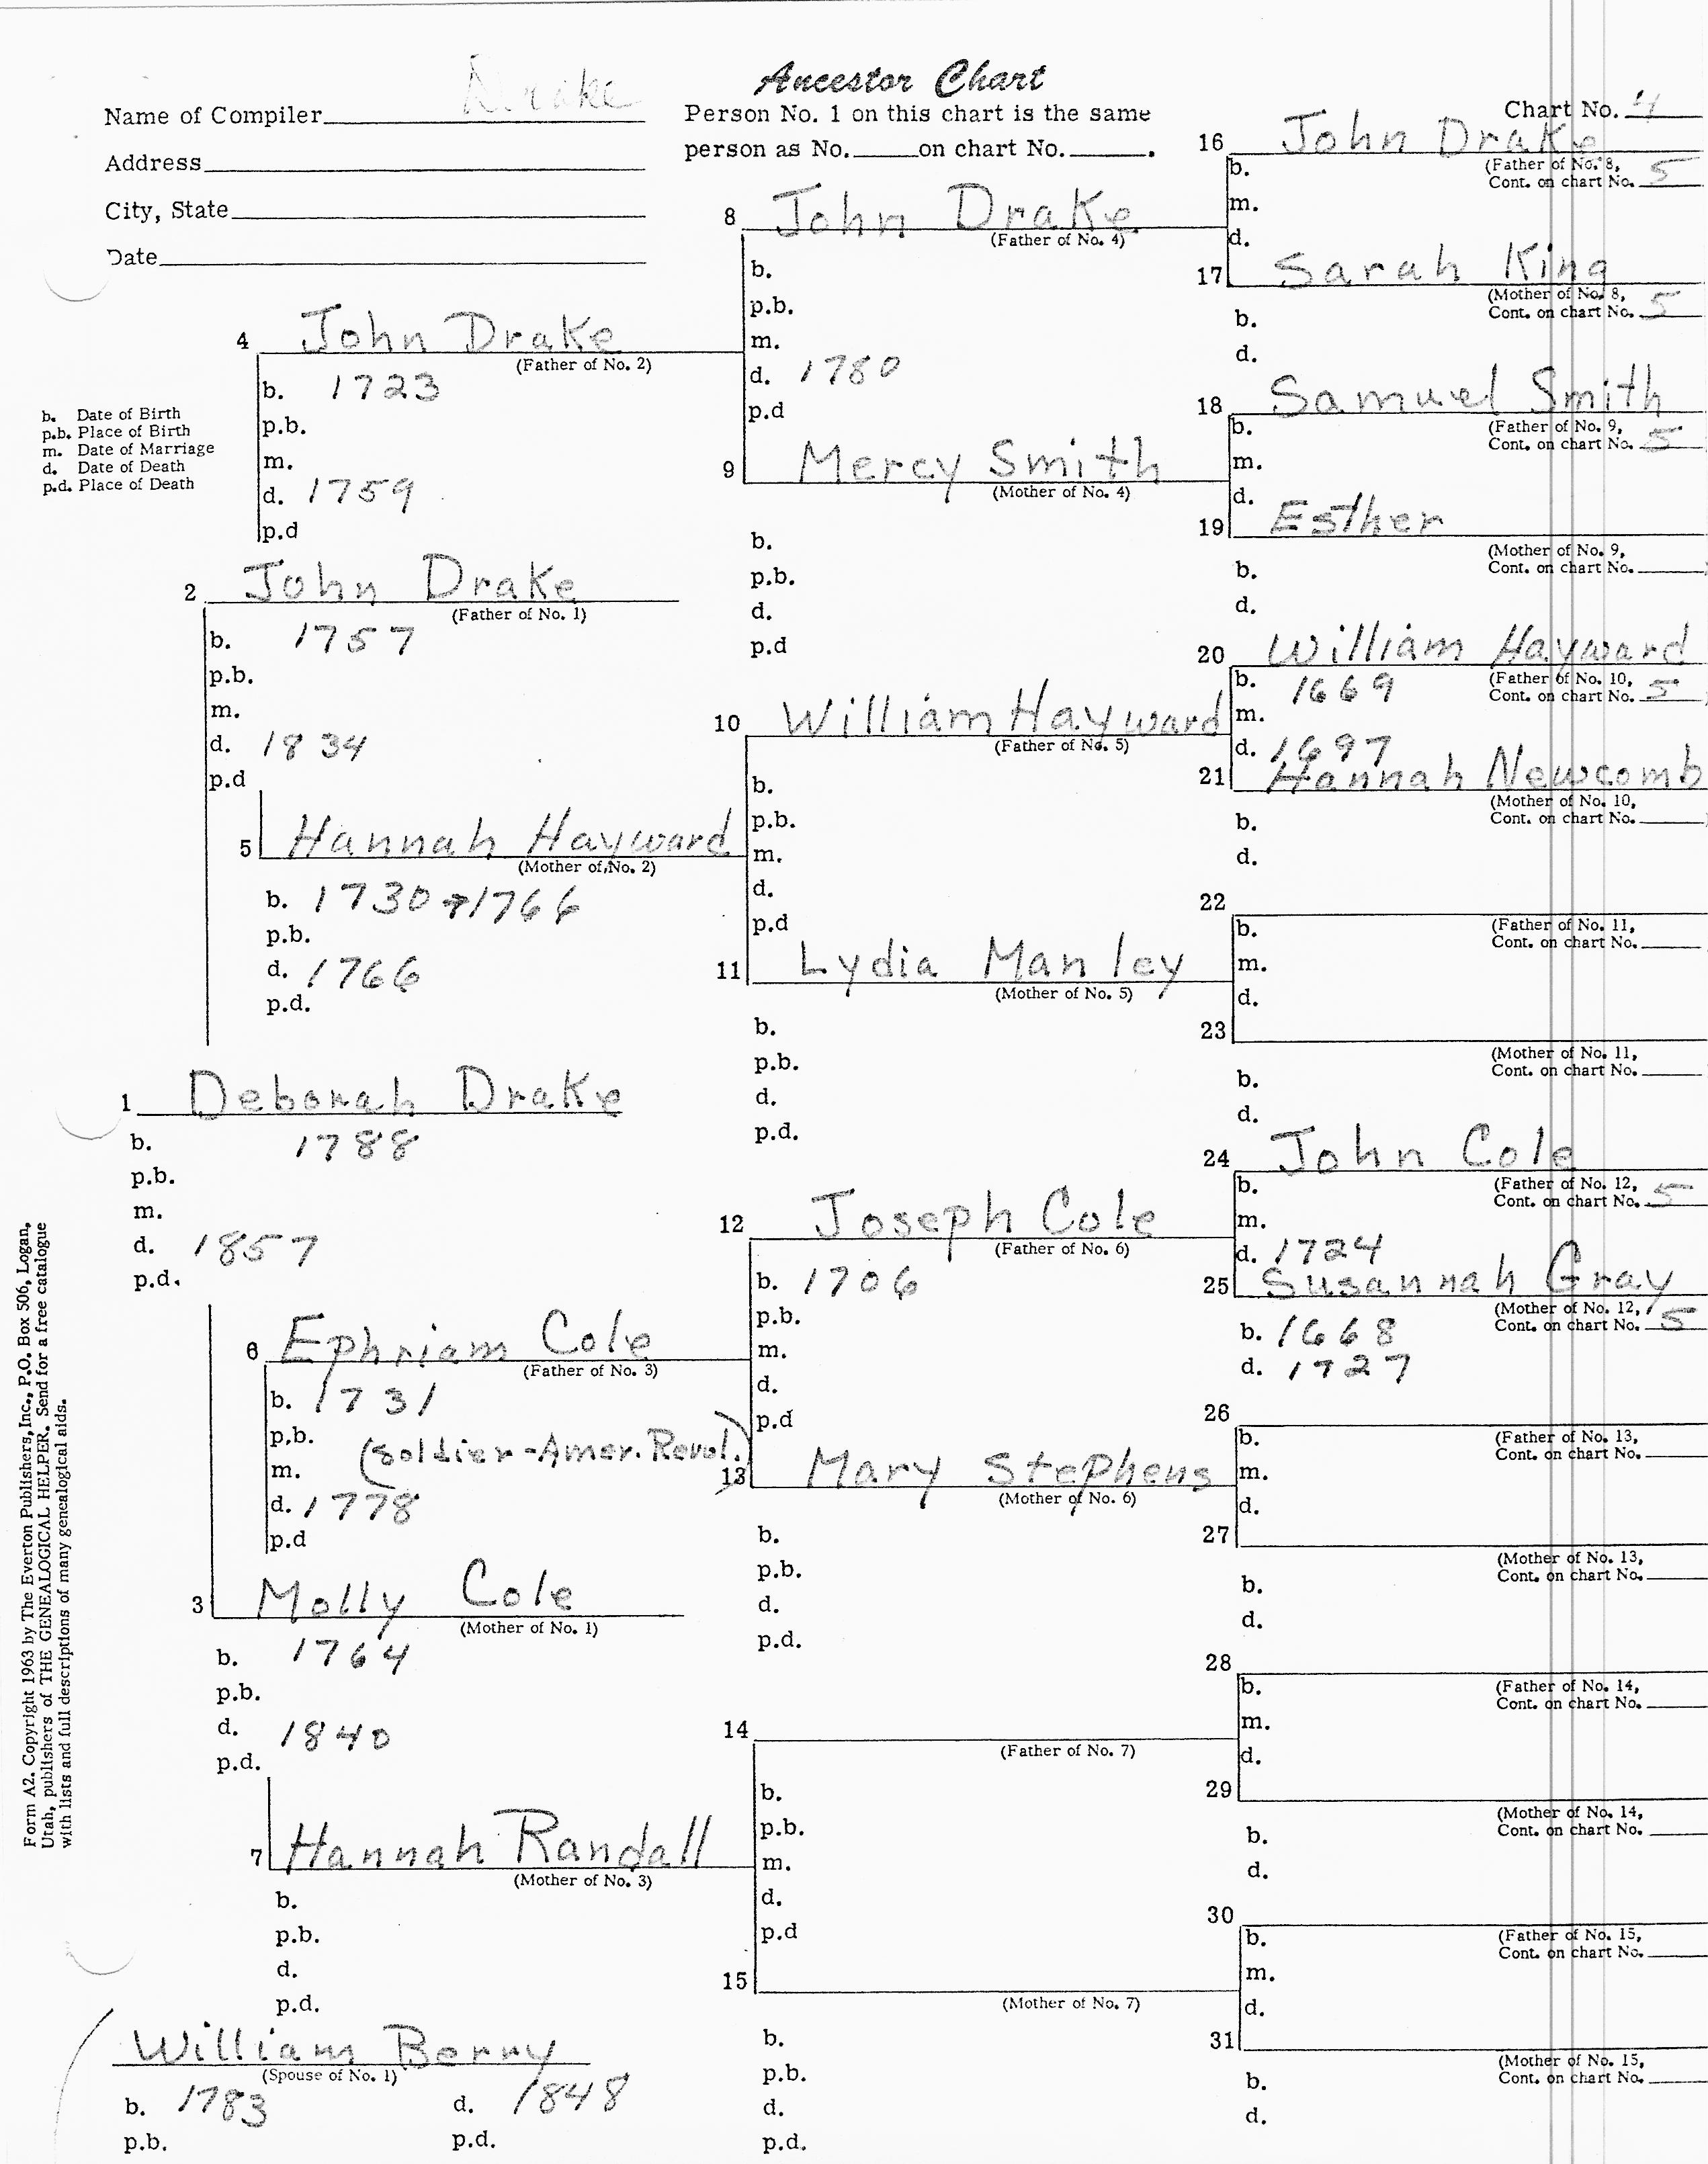 Ancestor Chart
Name of Compiler Drake
Address
City, State
Date
Person No. 1 on this chart is the same
person as No. on chart No. .
Chart No. 4
b. Date of Birth
p.b. Place of Birth
m. Date of Marriage
d. Date of Death
p.d. Place of Death
1 Deborah Drake
b. 1788
p.b.
m.
d. 1857
p.d.
2 John Drake
(Father of No. 1)
b. 1757
p.b.
m.
d. 1834
p.d
3 Molly Cole
(Mother of No. 1)
b. 1764
p.b.
d. 1840
p.d.
4 John Drake
(Father of No. 2)
b. 1723
p.b.
m.
d. 1759
p.d
5 Hannah Hayward
(Mother of No. 2)
b. 1730 → 1766
p.b.
d. 1766
p.d.
6 Ephriam Cole
(Father of No. 3)
b. 1731
p.b. (Soldier-Amer. Revol.)
m.
d. 1778
p.d
7 Hannah Randall
(Mother of No. 3)
b.
p.b.
d.
p.d.
William Berry
(Spouse of No. 1)
b. 1783 d. 1848
p.b. p.d.
8 John Drake
(Father of No. 4)
b.
p.b.
m.
d. 1780
p.d
9 Mercy Smith
(Mother of No. 4)
b.
p.b.
d.
p.d
10 William Hayward
(Father of No. 5)
b.
p.b.
m.
d.
p.d
11 Lydia Manley
(Mother of No. 5)
b.
p.b.
d.
p.d.
12 Joseph Cole
(Father of No. 6)
b. 1706
p.b.
m.
d.
p.d
13 Mary Stephens
(Mother of No. 6)
b.
p.b.
d.
p.d.
14
(Father of No. 7)
b.
p.b.
m.
d.
p.d
15
(Mother of No. 7)
b.
p.b.
d.
p.d.
16 John Drake
b. (Father of No. 8,
Cont. on chart No. 5
m.
d.
17 Sarah King
(Mother of No. 8,
b. Cont. on chart No. 5
d.
18 Samuel Smith
b. (Father of No. 9,
Cont. on chart No. 5
m.
d.
19 Esther
(Mother of No. 9,
b. Cont. on chart No.
d.
20 William Hayward
b. 1669 (Father of No. 10,
Cont. on chart No. 5
m.
d. 1697
21 Hannah Newcomb
(Mother of No. 10,
b. Cont. on chart No.
d.
22
b. (Father of No. 11,
Cont. on chart No.
m.
d.
23
(Mother of No. 11,
b. Cont. on chart No.
d.
24 John Cole
b. (Father of No. 12,
Cont. on chart No. 5
m.
d. 1724
25 Susannah Gray
(Mother of No. 12,
b. 1668 Cont. on chart No. 5
d. 1727
26
b. (Father of No. 13,
Cont. on chart No.
m.
d.
27
(Mother of No. 13,
b. Cont. on chart No.
d.
28
b. (Father of No. 14,
Cont. on chart No.
m.
d.
29
(Mother of No. 14,
b. Cont. on chart No.
d.
30
b. (Father of No. 15,
Cont. on chart No.
m.
d.
31
(Mother of No. 15,
b. Cont. on chart No.
d.
Form A2. Copyright 1963 by The Everton Publishers, Inc., P.O. Box 506, Logan,
Utah, publishers of THE GENEALOGICAL HELPER. Send for a free catalogue
with lists and full descriptions of many genealogical aids.